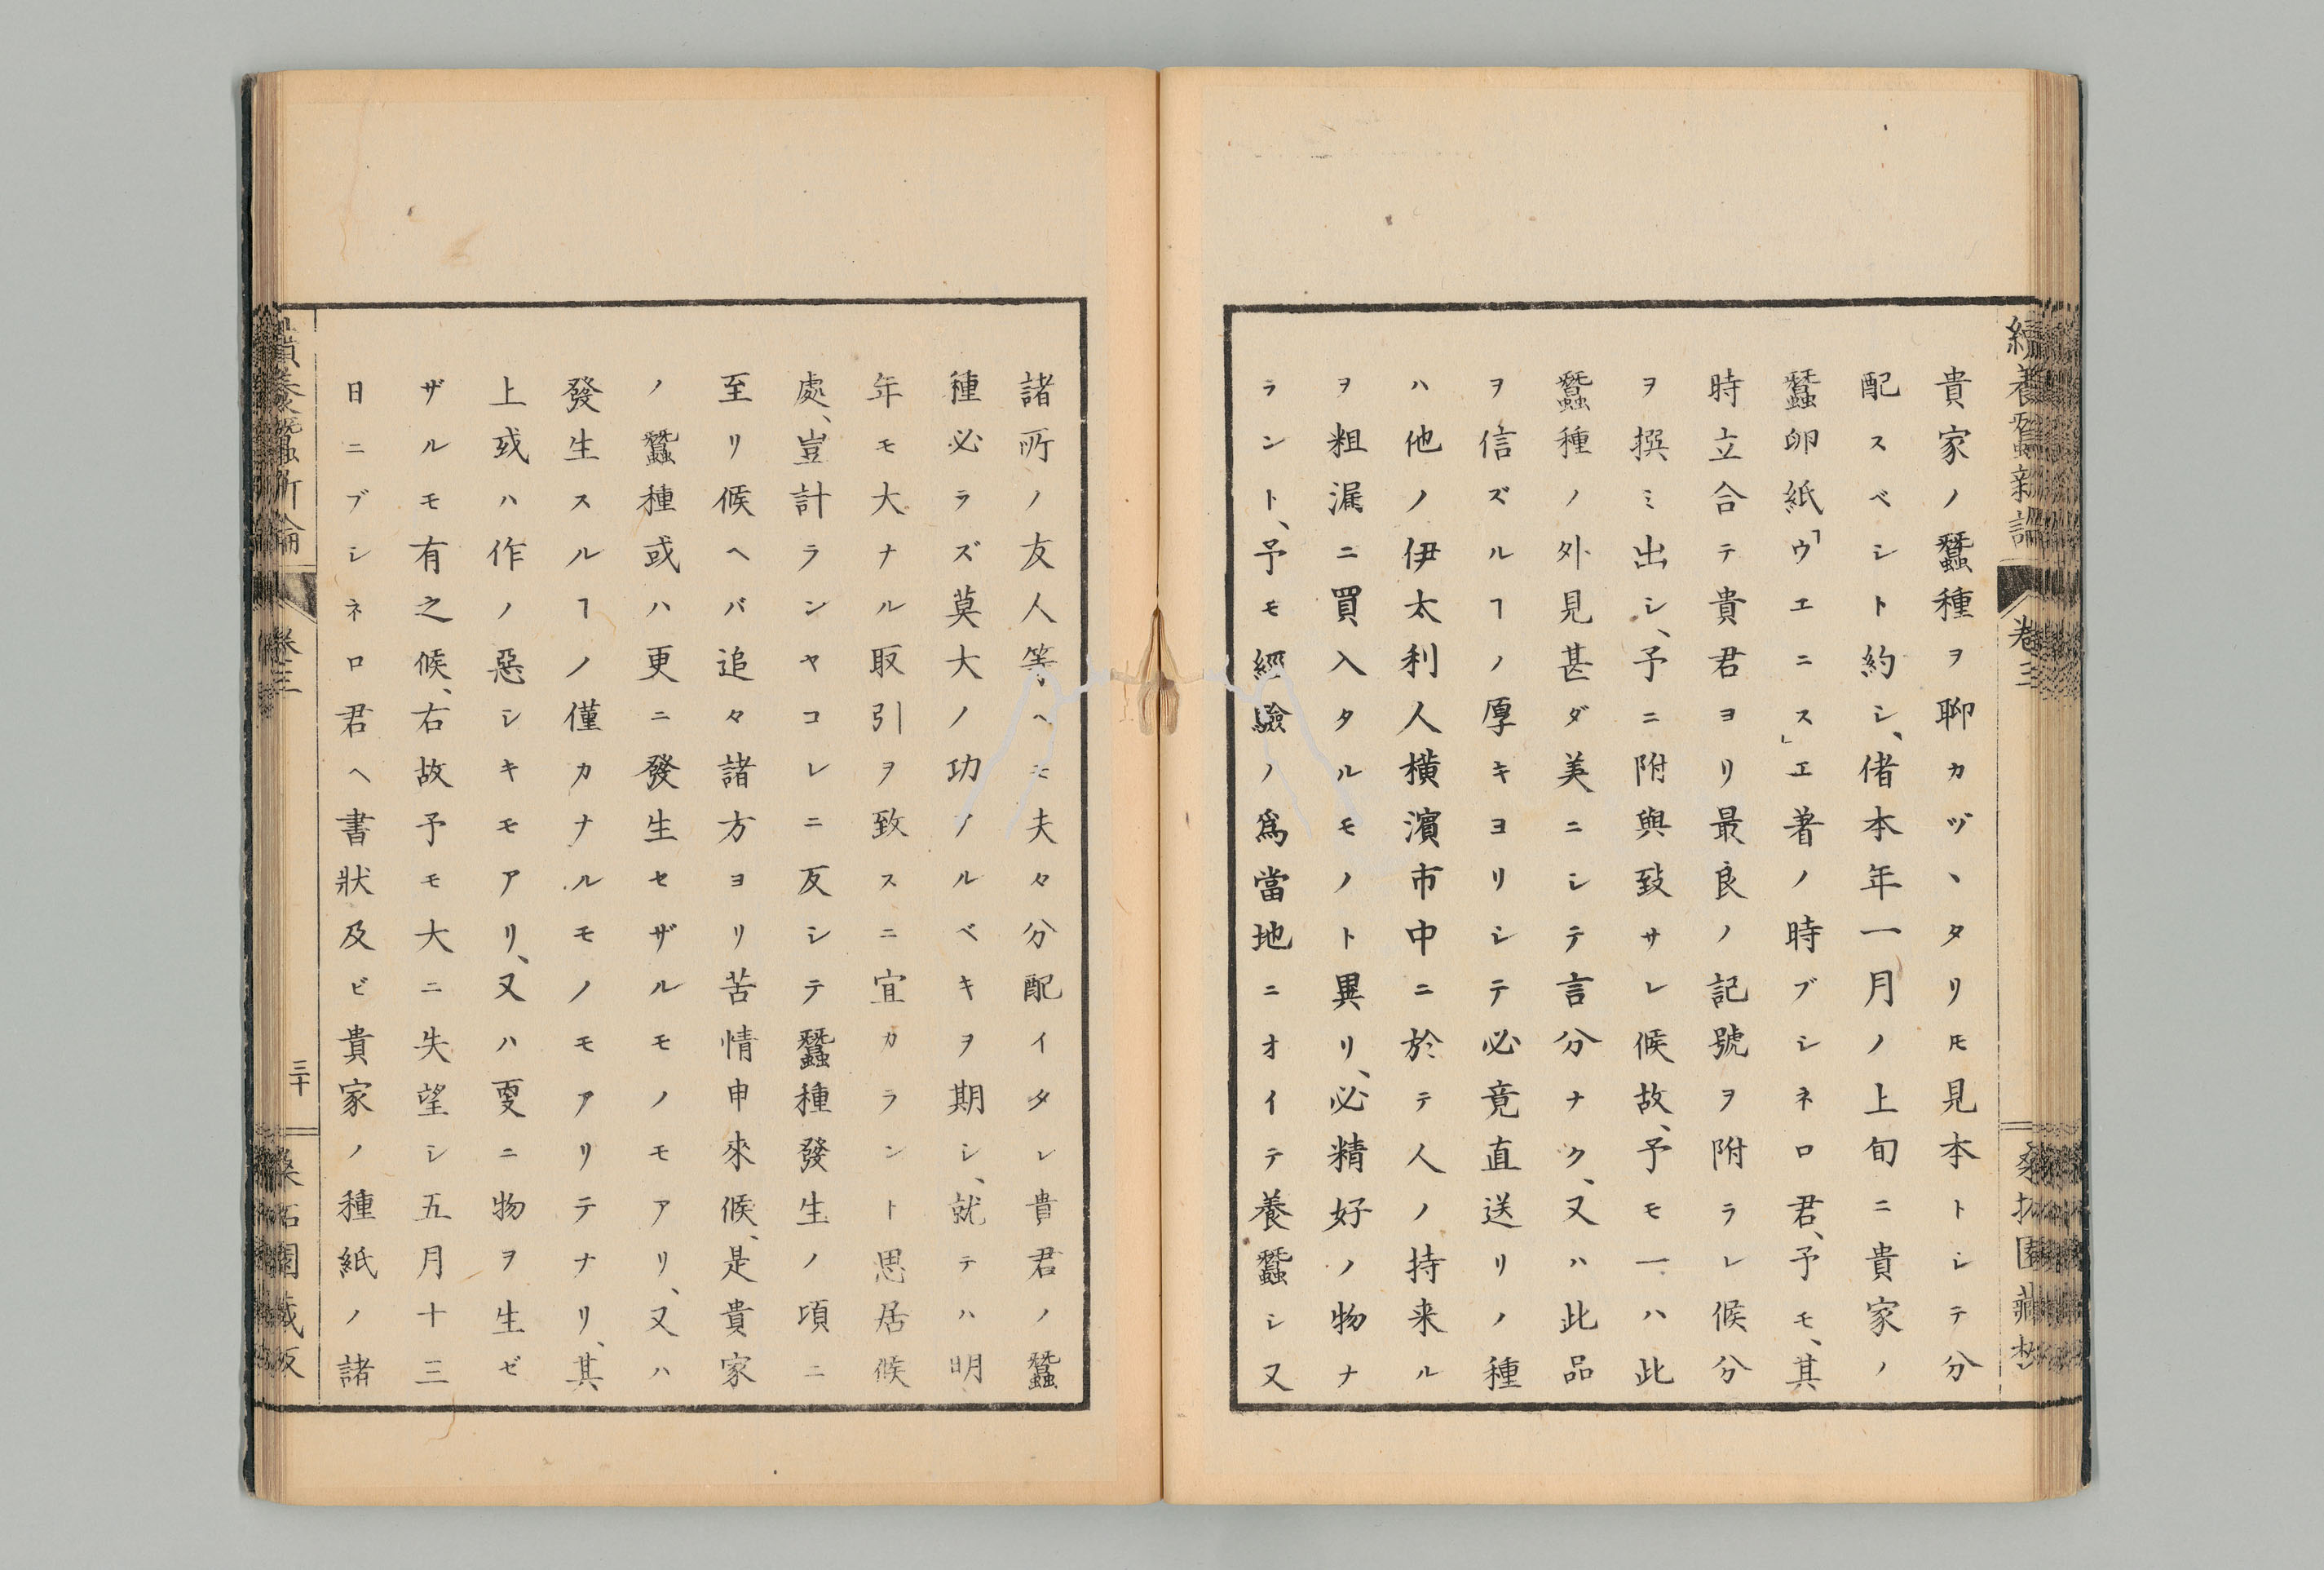 續養蠶新論
卷三
桑拓園藏梓
貴家ノ蠶種ヲ聊カヅヽタリ𪜈見本トシテ分
配スベシト約シ、偖本年一月ノ上旬ニ貴家ノ
蠶卵紙「ウエニス」エ著ノ時ブシネロ君、予モ、其
時立合テ貴君ヨリ最良ノ記號ヲ附ラレ候分
ヲ撰ミ出シ、予ニ附與致サレ候故、予モ一ハ此
蠶種ノ外見甚ダ美ニシテ言分ナク、又ハ此品
ヲ信ズルヿノ厚キヨリシテ必竟直送リノ種
ハ他ノ伊太利人横濱市中ニ於テ人ノ持来ル
ヲ粗漏ニ買入タルモノト異リ、必精好ノ物ナ
ラント、予モ經驗ノ爲當地ニオイテ養蠶シ又
諸所ノ友人等ヘモ夫々分配イタレ貴君ノ蠶
種必ラズ莫大ノ功ノルベキヲ期シ、就テハ明
年モ大ナル取引ヲ致スニ宜カラント思居候
處、豈計ランヤコレニ反シテ蠶種發生ノ頃ニ
至リ候ヘバ追々諸方ヨリ苦情申來候、是貴家
ノ蠶種或ハ更ニ發生セザルモノモアリ、又ハ
發生スルヿノ僅カナルモノモアリテナリ、其
上或ハ作ノ惡シキモアリ、又ハ更ニ物ヲ生ゼ
ザルモ有之候、右故予モ大ニ失望シ五月十三
日ニブシネロ君ヘ書狀及ビ貴家ノ種紙ノ諸
續養蠶新論
卷三
三十
桑拓園藏版